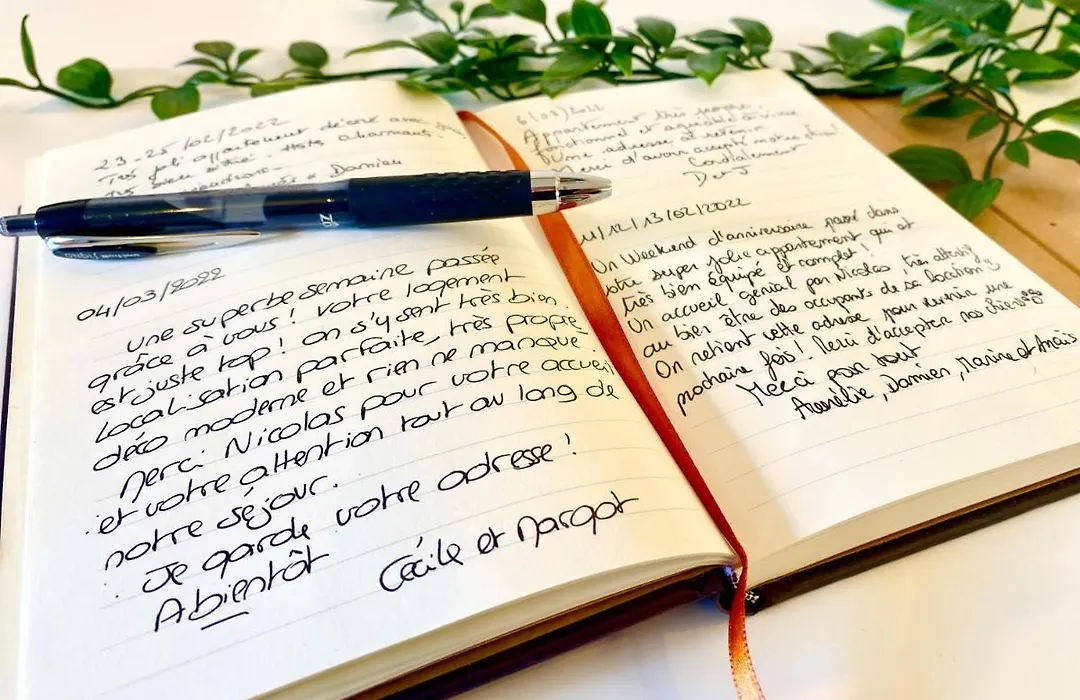 23-25/02/2022
Très joli appartement décoré avec
très bien situé. Hôte charmant.
& Damien
04/03/2022
Une superbe semaine passée
grâce à vous ! Votre logement
est juste top ! on s'y sent très bien.
Localisation parfaite, très propre
déco moderne et rien ne manque
Merci Nicolas pour votre accueil
et votre attention tout au long de
notre séjour.
Je garde votre adresse !
A bientôt
Cécile et Margot
6/03/2022
Appartement très propre,
fonctionnel et agréable à vivre
Une adresse à retenir
Merci d'avoir accepté notre
Cordialement
D et J
11/12/13/02/2022
Un Weekend d'anniversaire passé dans
votre super jolie appartement qui est
très bien équipé et complet !
Un accueil génial par Nicolas, très attentif
au bien être des occupants de sa location
On retient cette adresse pour revenir une
prochaine fois ! Merci d'accepter nos
Merci pour tout
Aurélie, Damien, Marine et Anaïs